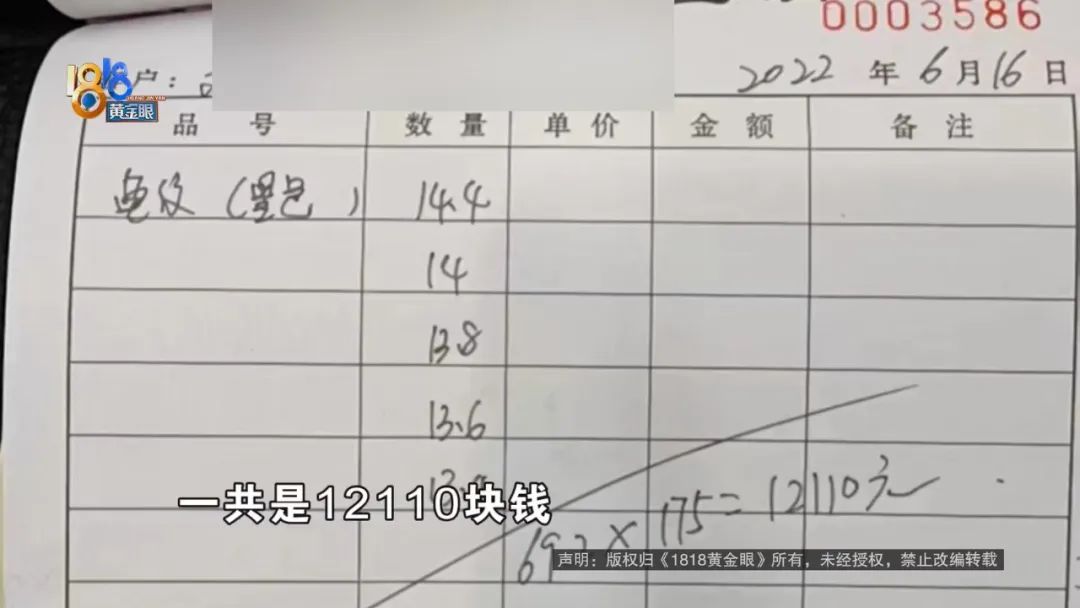 0003586
1818 黄金眼
户：
2022 年 6 月 16 日
品 号 数 量 单 价 金 额 备 注
龟纹（墨色） 14.4
14
13.8
13.6
一共是12110块钱
× 175 = 12110元
声明：版权归《1818黄金眼》所有，未经授权，禁止改编转载